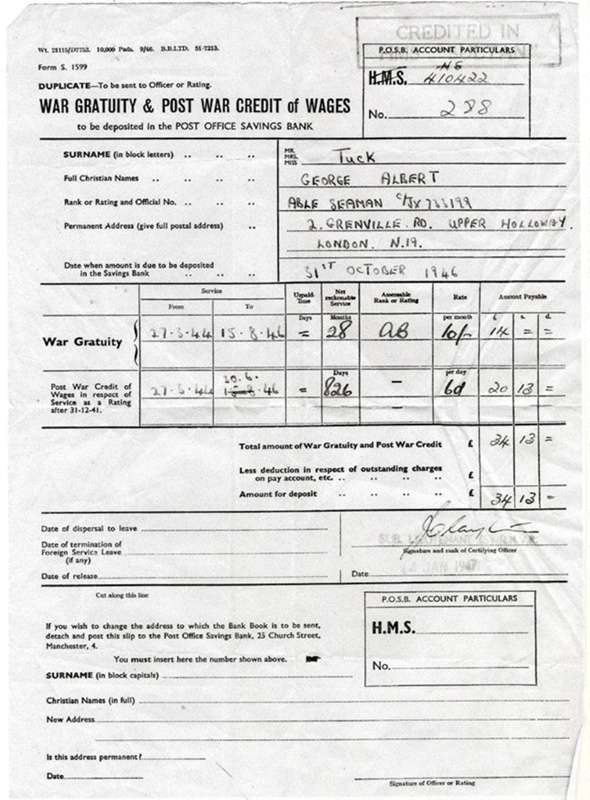 CREDITED IN
Wt. 21115/D7753. 10,000 Pads. 9/46. B.B.LTD. 51-7253.
Form S. 1599
DUPLICATE—To be sent to Officer or Rating.
WAR GRATUITY & POST WAR CREDIT of WAGES
to be deposited in the POST OFFICE SAVINGS BANK
P.O.S.B. ACCOUNT PARTICULARS
H.M.S. 410422
No. 288
SURNAME (in block letters) .. .. .. MR. MRS. MISS Tuck
Full Christian Names .. .. .. GEORGE ALBERT
Rank or Rating and Official No. .. .. .. ABLE SEAMAN C/JX 733199
Permanent Address (give full postal address) .. 2. GRENVILLE. RD. UPPER HOLLOWAY.
LONDON. N.19.
Date when amount is due to be deposited
in the Savings Bank .. .. .. 31ST OCTOBER 1946
Service Unpaid Time Net reckonable Service Assessable Rank or Rating Rate Amount Payable
From To
Days Months per month £ s. d.
War Gratuity 27-3-44 15-8-46 = 28 AB 10/- 14 = =
Days per day
Post War Credit of Wages in respect of Service as a Rating after 31-12-41. 27-3-44 30.6. 15-8-46 = 826 — 6d 20 13 =
Total amount of War Gratuity and Post War Credit £ 34 13 =
Less deduction in respect of outstanding charges
on pay account, etc. .. .. .. .. £
Amount for deposit .. .. .. .. £ 34 13 —
Date of dispersal to leave
Date of termination of
Foreign Service Leave
(if any)
Date of release
SUB. LIEUTENANT
Signature and rank of Certifying Officer
Date 14 JAN 1947
Cut along this line
If you wish to change the address to which the Bank Book is to be sent,
detach and post this slip to the Post Office Savings Bank, 25 Church Street,
Manchester, 4.
You must insert here the number shown above.
P.O.S.B. ACCOUNT PARTICULARS
H.M.S.
No.
SURNAME (in block capitals)
Christian Names (in full)
New Address
Is this address permanent?
Date
Signature of Officer or Rating